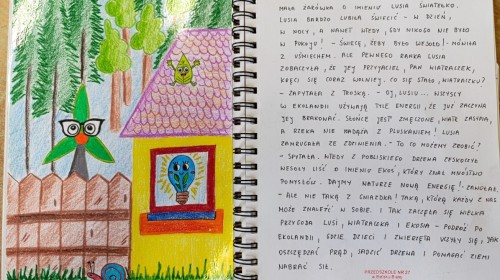 MAŁA ŻARÓWKA O IMIENIU LUSIA ŚWIATEŁKO.
LUSIA BARDZO LUBIŁA ŚWIECIĆ - W DZIEŃ,
W NOCY, A NAWET WTEDY, GDY NIKOGO NIE BYŁO
W POKOJU! - ŚWIECĘ, ŻEBY BYŁO WESOŁO! - MÓWIŁA
Z UŚMIECHEM. ALE PEWNEGO RANKA LUSIA
ZOBACZYŁA, ŻE JEJ PRZYJACIEL, PAN WIATRACZEK,
KRĘCI SIĘ CORAZ WOLNIEJ. - CO SIĘ STAŁO, WIATRACZKU?
- ZAPYTAŁA Z TROSKĄ. - OJ, LUSIU... WSZYSCY
W EKOLANDII UŻYWAJĄ TYLE ENERGII, ŻE JUŻ ZACZYNA
JEJ BRAKOWAĆ. SŁOŃCE JEST ZMĘCZONE, WIATR ZASYPIA,
A RZEKA NIE NADĄŻA Z PLUSKANIEM! LUSIA
ZAMRUGAŁA ZE ZDZIWIENIA. - TO CO MOŻEMY ZROBIĆ?
- SPYTAŁA. WTEDY Z POBLISKIEGO DRZEWA ZESKOCZYŁ
WESOŁY LIŚĆ O IMIENIU EKOŚ, KTÓRY ZNAŁ MNÓSTWO
POMYSŁÓW. - DAJMY NATURZE NOWĄ ENERGIĘ! - ZAWOŁAŁ
- ALE NIE TAKĄ Z GNIAZDKA! TAKĄ, KTÓRĄ KAŻDY Z NAS
MOŻE ZNALEŹĆ W SOBIE. I TAK ZACZĘŁA SIĘ WIELKA
PRZYGODA LUSI, WIATRACZKA I EKOSIA - PODRÓŻ PO
EKOLANDII, GDZIE DZIECI I ZWIERZĘTA UCZYŁY SIĘ, JAK
OSZCZĘDZAĆ PRĄD, SADZIĆ DRZEWA I POMAGAĆ ZIEMI
NABRAĆ SIŁ.
PRZEDSZKOLE NR 37